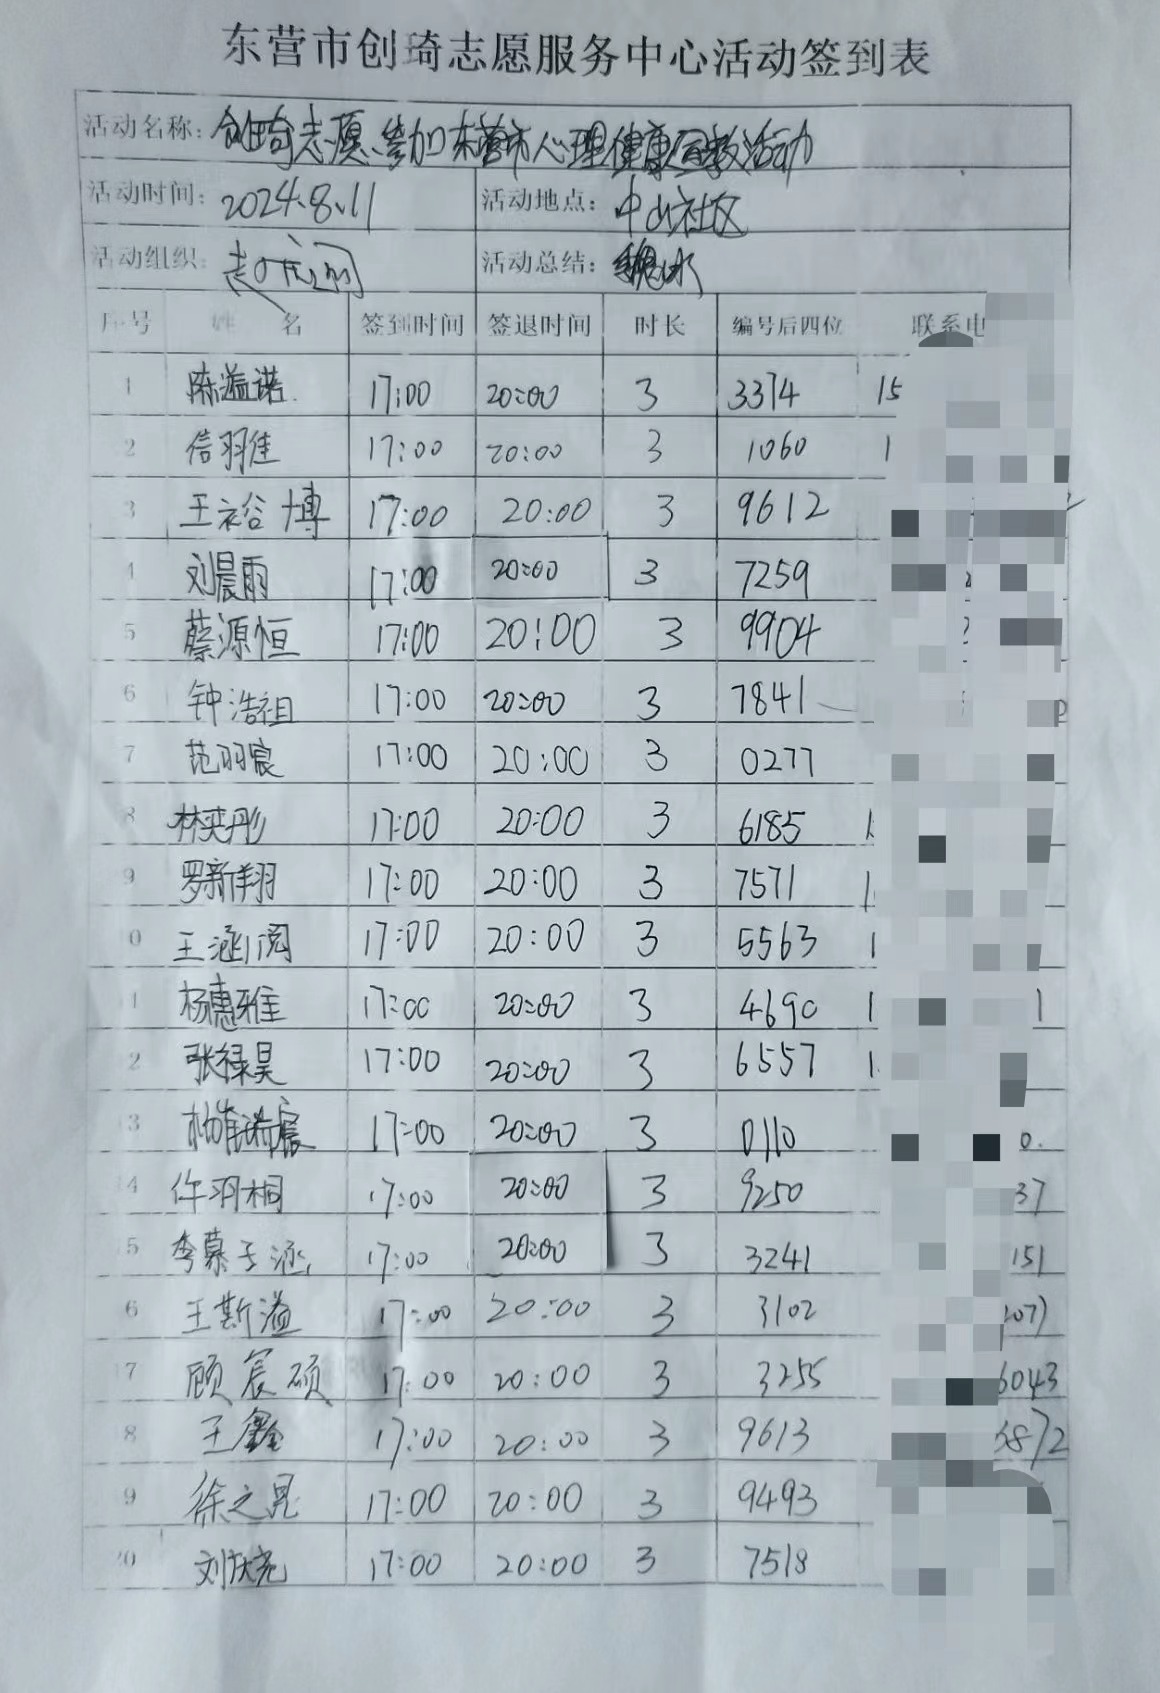 东营市创琦志愿服务中心活动签到表
活动名称：创琦志愿参加东营市心理健康宣教活动
活动时间：2024.8.11 活动地点：中山社区
活动组织： 活动总结：
序号 姓名 签到时间 签退时间 时长 编号后四位 联系电
1 陈溢诺 17:00 20:00 3 3374 15
2 信羽佳 17:00 20:00 3 1060 1
3 王裕博 17:00 20:00 3 9612
4 刘晨雨 17:00 20:00 3 7259
5 蔡源恒 17:00 20:00 3 9904
6 钟浩祖 17:00 20:00 3 7841
7 范羽宸 17:00 20:00 3 0277
8 林奕彤 17:00 20:00 3 6185 1
9 罗新翔 17:00 20:00 3 7571 1
0 王涵阅 17:00 20:00 3 5563 1
1 杨惠雅 17:00 20:00 3 4690 1 1
2 张禄昊 17:00 20:00 3 6557 1
3 17:00 20:00 3 0110 0
14 许羽桐 17:00 20:00 3 9250 37
5 李慕子涵 17:00 20:00 3 3241 151
6 王斯溢 17:00 20:00 3 3102
17 顾宸硕 17:00 20:00 3 3255 6043
8 王鑫 17:00 20:00 3 9613 872
9 徐之晃 17:00 20:00 3 9493
20 17:00 20:00 3 7518